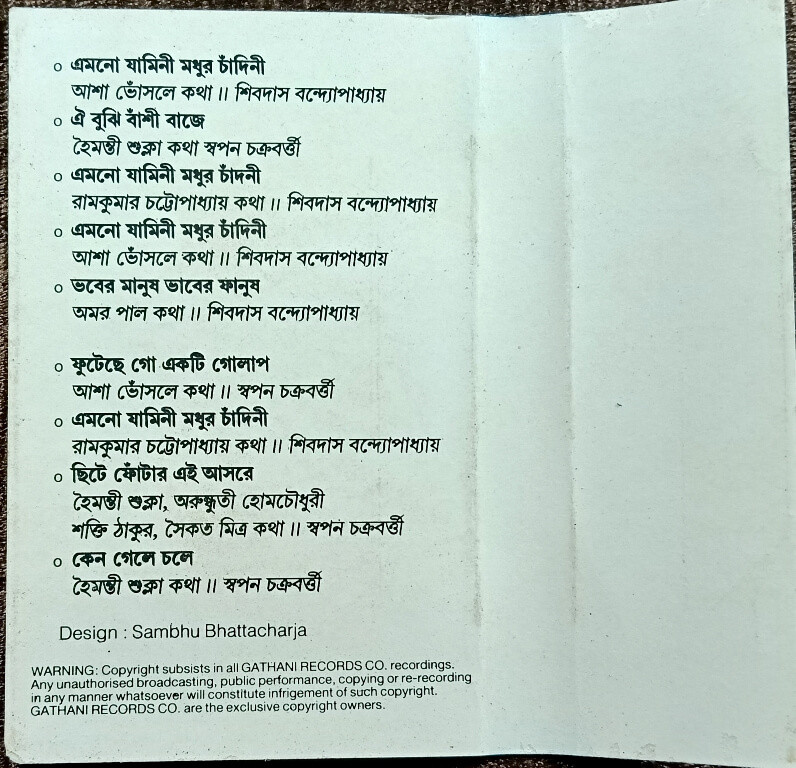 o এমনো যামিনী মধুর চাঁদিনী
আশা ভোঁসলে কথা ।। শিবদাস বন্দ্যোপাধ্যায়
o ঐ বুঝি বাঁশী বাজে
হৈমন্তী শুক্লা কথা স্বপন চক্রবর্ত্তী
o এমনো যামিনী মধুর চাঁদনী
রামকুমার চট্টোপাধ্যায় কথা ।। শিবদাস বন্দ্যোপাধ্যায়
o এমনো যামিনী মধুর চাঁদিনী
আশা ভোঁসলে কথা ।। শিবদাস বন্দ্যোপাধ্যায়
o ভবের মানুষ ভাবের ফানুষ
অমর পাল কথা ।। শিবদাস বন্দ্যোপাধ্যায়
o ফুটেছে গো একটি গোলাপ
আশা ভোঁসলে কথা ।। স্বপন চক্রবর্ত্তী
o এমনো যামিনী মধুর চাঁদিনী
রামকুমার চট্টোপাধ্যায় কথা ।। শিবদাস বন্দ্যোপাধ্যায়
o ছিটে ফোঁটার এই আসরে
হৈমন্তী শুক্লা, অরুন্ধুতী হোমচৌধুরী
শক্তি ঠাকুর, সৈকত মিত্র কথা ।। স্বপন চক্রবর্ত্তী
o কেন গেলে চলে
হৈমন্তী শুক্লা কথা ।। স্বপন চক্রবর্ত্তী
Design : Sambhu Bhattacharja
WARNING: Copyright subsists in all GATHANI RECORDS CO. recordings.
Any unauthorised broadcasting, public performance, copying or re-recording
in any manner whatsoever will constitute infrigement of such copyright.
GATHANI RECORDS CO. are the exclusive copyright owners.